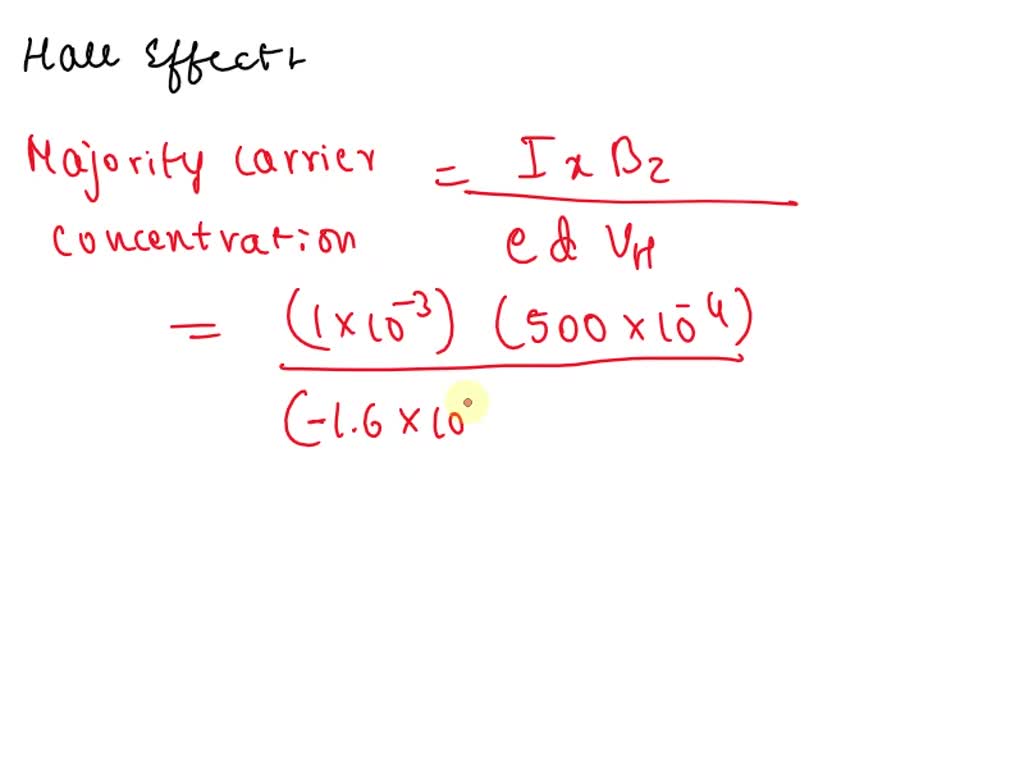 Hall Effect
Majority carrier = Ix Bz
concentration e d VH
= (1×10⁻³) (500×10⁻⁴)
(-1.6×10